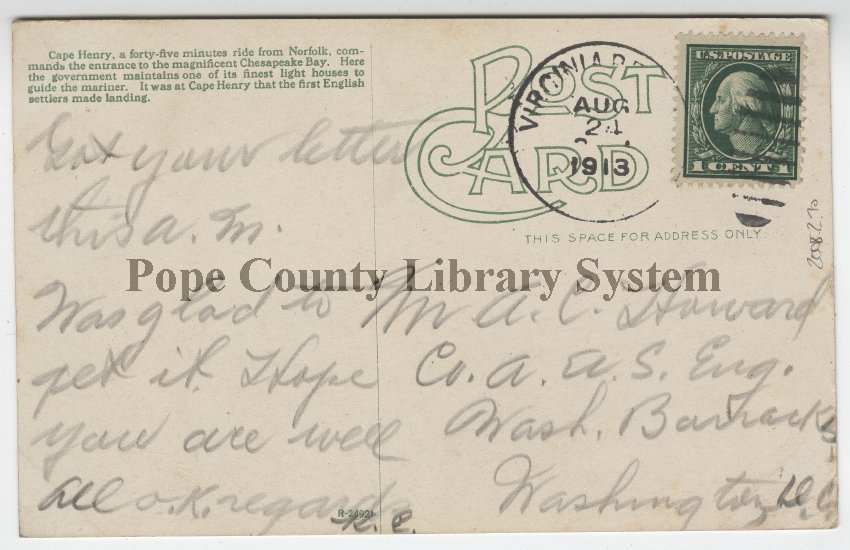 Cape Henry, a forty-five minutes ride from Norfolk, com-
mands the entrance to the magnificent Chesapeake Bay. Here
the government maintains one of its finest light houses to
guide the mariner. It was at Cape Henry that the first English
settlers made landing.
POST
CARD
VIRGINIA
AUG
24
1913
U.S. POSTAGE
1 CENT 1
THIS SPACE FOR ADDRESS ONLY.
2008.2.70
Got your letter
this a.m.
Was glad to
get it. Hope
you are well
all o.k. regards
R. C.
Pope County Library System
Mr A. C. Howard
Co. A. U.S. Eng.
Wash. Barracks
Washington, D.C.
R-24921